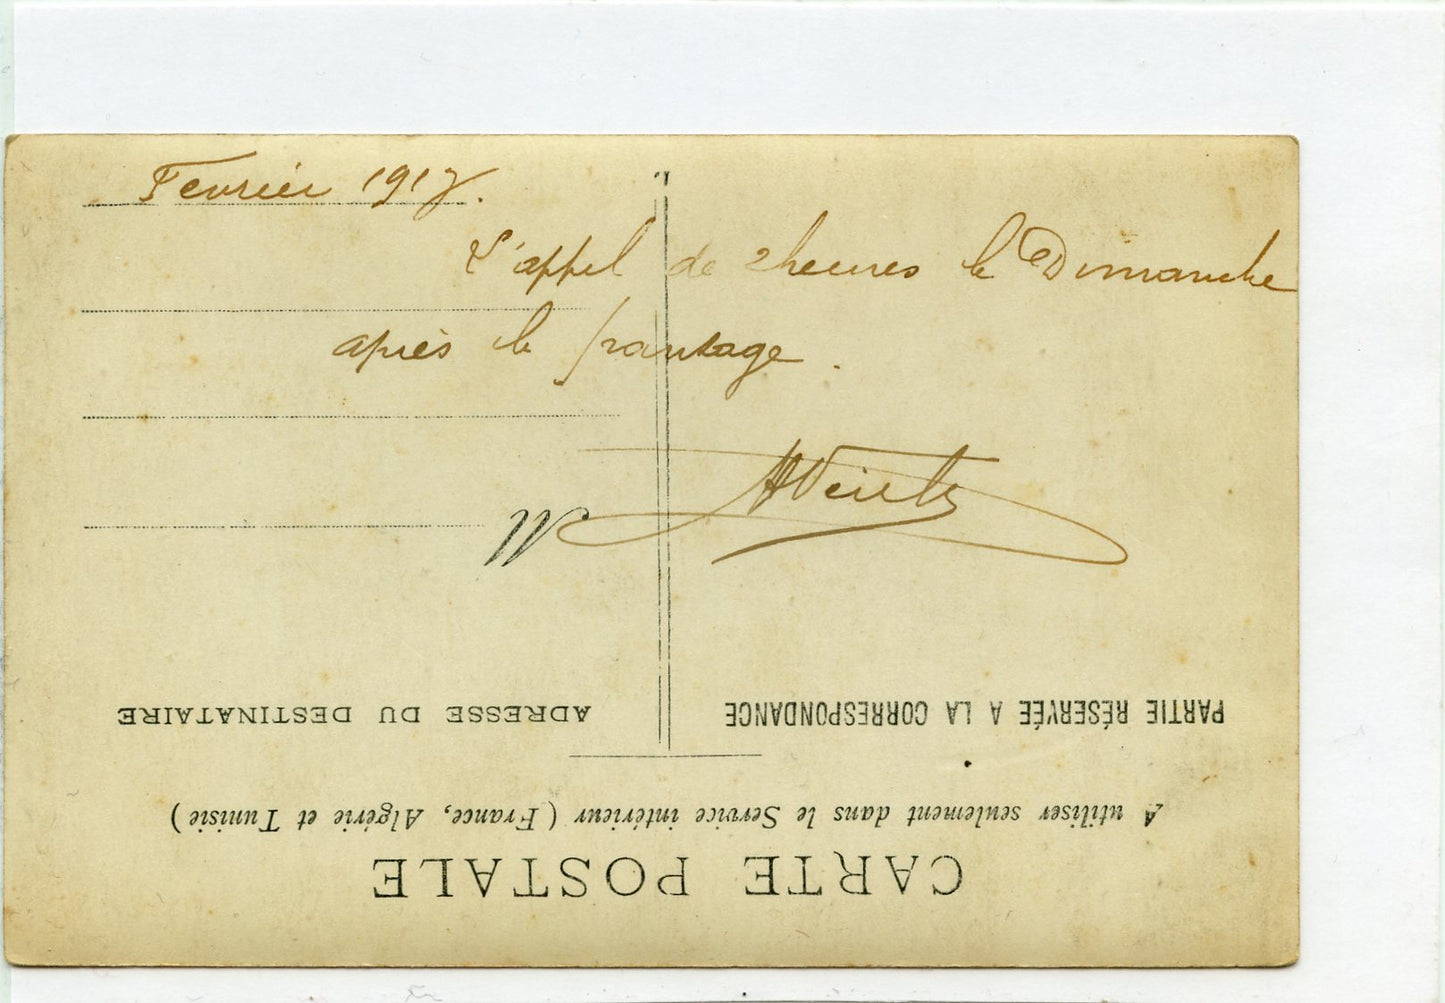 Fevrier 1917.
L'appel de 2 heures le Dimanche
après le
M
PARTIE RÉSERVÉE A LA CORRESPONDANCE
ADRESSE DU DESTINATAIRE
A utiliser seulement dans le Service intérieur (France, Algérie et Tunisie)
CARTE POSTALE